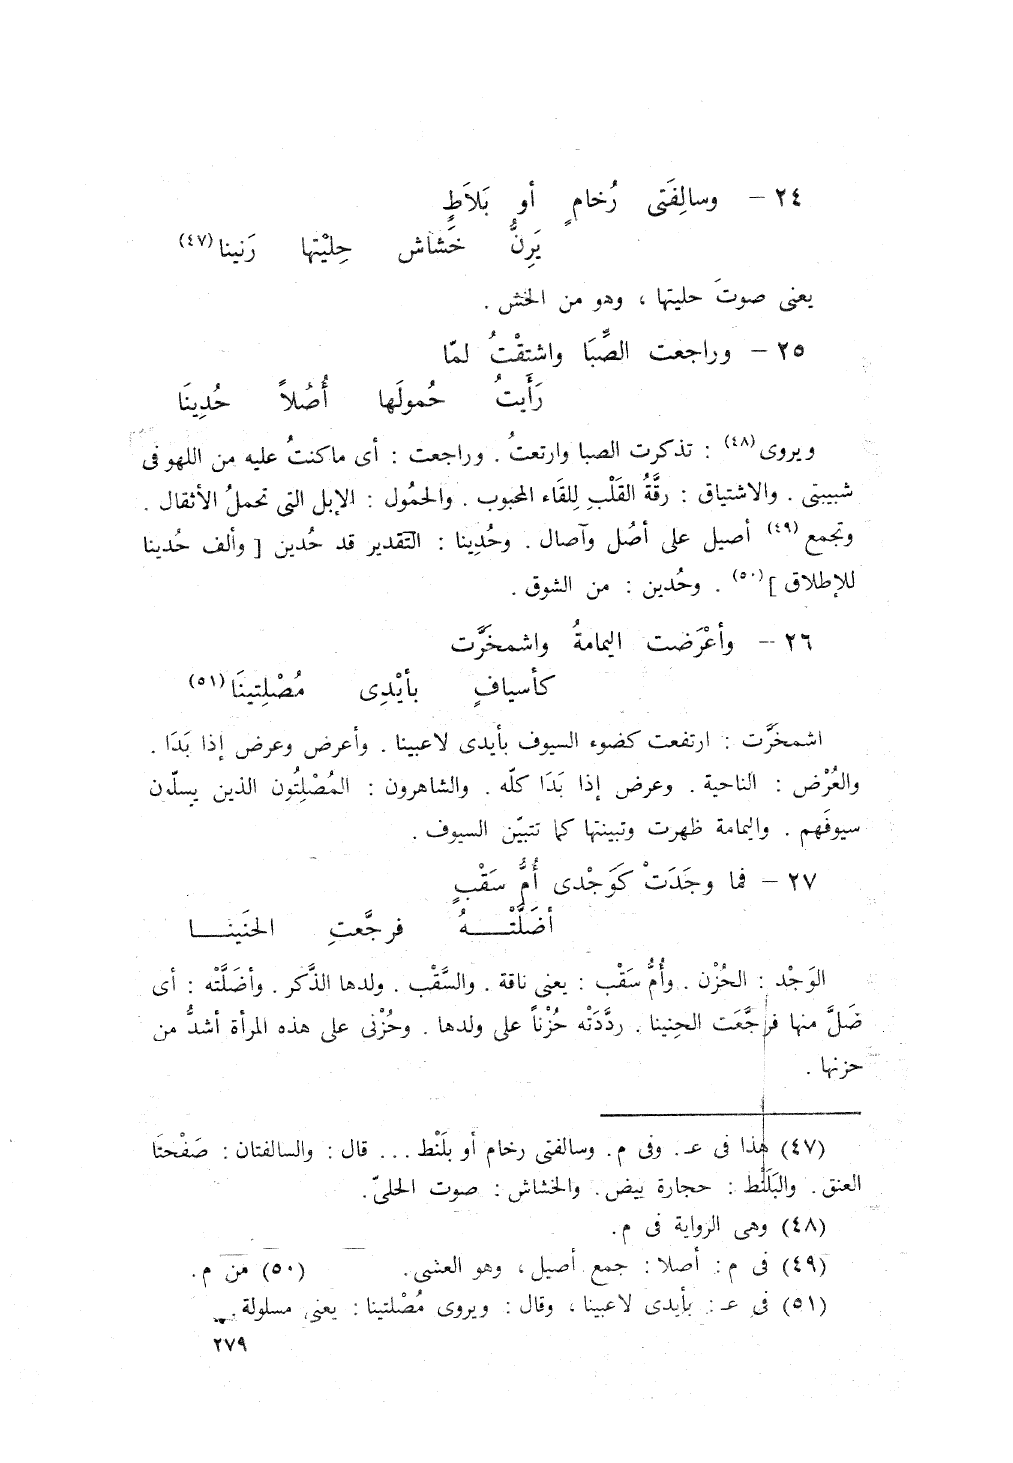 ٢٤ – وسالِفَتى رُخامٍ أو بَلاَطٍ
يَرِنُّ خَشاش حِليْتها رَنينا (٤٧)
يعنى صوتَ حليتها ، وهو من الخش .
٢٥ – وراجعت الصِّبَا واشتقْتُ لمّا
رَأَيتُ حُمولَها أُصُلاً حُدِينَا
ويروى (٤٨) : تذكرت الصبا وارتعتُ . وراجعت : أى ماكنتُ عليه من اللهو فى
شبيبتى . والاشتياق : رقَّةُ القَلْبِ لِلقَاء المحبوب . والحمُول : الإبل التى تحملُ الأثقال .
وتجمع (٤٩) أصيل على أصُل وآصال . وحُدِينا : التقدير قد حُدين [ وألف حُدينا
للإطلاق ] (٥٠) . وحُدين : من الشوق .
٢٦ – وأعْرَضت اليمامةُ واشمخَرَّت
كأسيافٍ بأيْدِى مُصْلِتينَا (٥١)
اشمخَرَّت : ارتفعت كضوء السيوف بأيدى لاعبينا . وأعرض وعرض إذا بَدَا .
والعُرْض : الناحية . وعرض إذا بَدَا كلّه . والشاهرون : المُصْلِتُون الذين يسلّون
سيوفَهم . واليمامة ظهرت وتبينتها كما تتبيّن السيوف .
٢٧ – فما وجَدَتْ كَوَجْدى أُمُّ سَقْبٍ
أضَلَّتْـــهُ فرجَّعتِ الحَنَينـــا
الوَجْد : الحُزْن . وأُمُّ سَقْب : يعنى ناقة . والسَّقْب . ولدها الذَّكر . وأضَلَّتْه : أى
ضَلَّ منها فرجَّعَت الحِنينا . ردَّدَتْه حُزْناً على ولدها . وحُزْنى على هذه المرأة أشدُّ من
حزنها .
(٤٧) هذا فى عـ. وفى م. وسالفتى رخام أو بلَنْط ... قال : والسالفتان : صَفْحتَا
العنق. والبَلَنْط : حجارة بيض. والخشاش : صوت الحلىّ.
(٤٨) وهى الرواية فى م.
(٤٩) فى م : أصلا : جمع أصيل، وهو العشى. (٥٠) من م.
(٥١) فى عـ : بأيدى لاعبينا ، وقال : ويروى مُصْلتينا : يعنى مسلولة.
٢٧٩